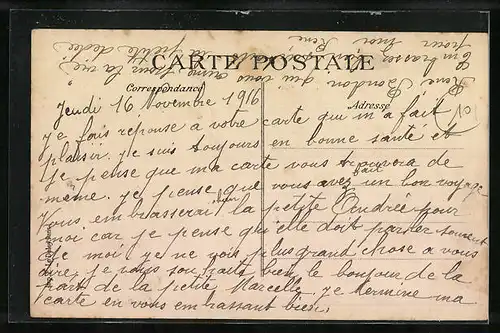 CARTE POSTALE
Correspondance
Adresse
Jeudi 16 Novembre 1916
je fais reponse a votre carte qui m'a fait
plaisir. je suis toujours en bonne sante et
je pense que ma carte vous trouvera de
meme. je pense que vous avez fait un bon voyage
Vous embrasserai bien la petite Andrée pour
moi car je pense qu'elle doit parler souvent
de moi je ne vois plus grand chose a vous
dire je vous souhaite bien le bonjour de la
part de la petite Marcelle. je termine ma
carte en vous embrassant bien.
René Bondon qui vous aime pour la vie
Embrassez la petite dedée
pour moi René